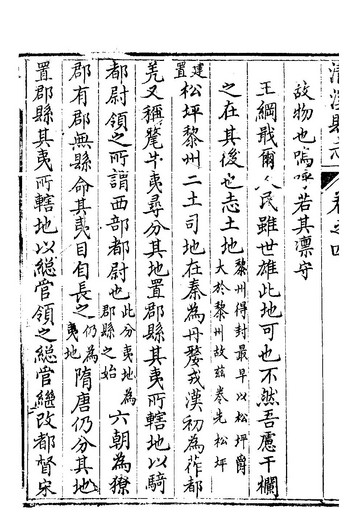 清溪縣志 卷之四
故物也嗚呼若其凛守
王綱戢爾人民雖世雄此地可也不然吾慮干欄
之在其後也志土地
黎州得封最早以松坪爵
大於黎州故兹卷先松坪
建置
松坪黎州二土司地在秦為丹嫠戎漢初為莋都
羌又稱氂牛夷尋分其地置郡縣其夷所轄地以騎
都尉領之所謂西部都尉也
此分夷地為
郡縣之始
六朝為獠
郡有郡無縣命其夷目自長之
仍為
夷地
隋唐仍分其地
置郡縣其夷所轄地以総官領之総官継改都督宋